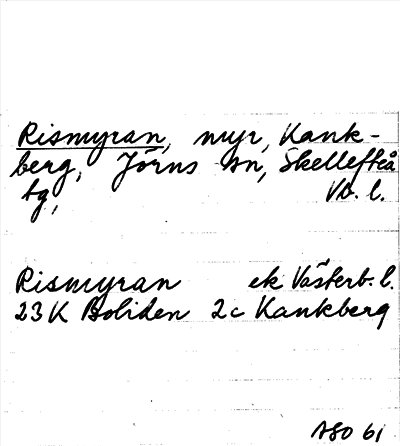 Rismyran, myr, Kank-
berg, Jörns sn, Skellefteå
tg, Vb. l.
Rismyran ek Västerb. l.
23K Boliden 2c Kankberg
ASO 61